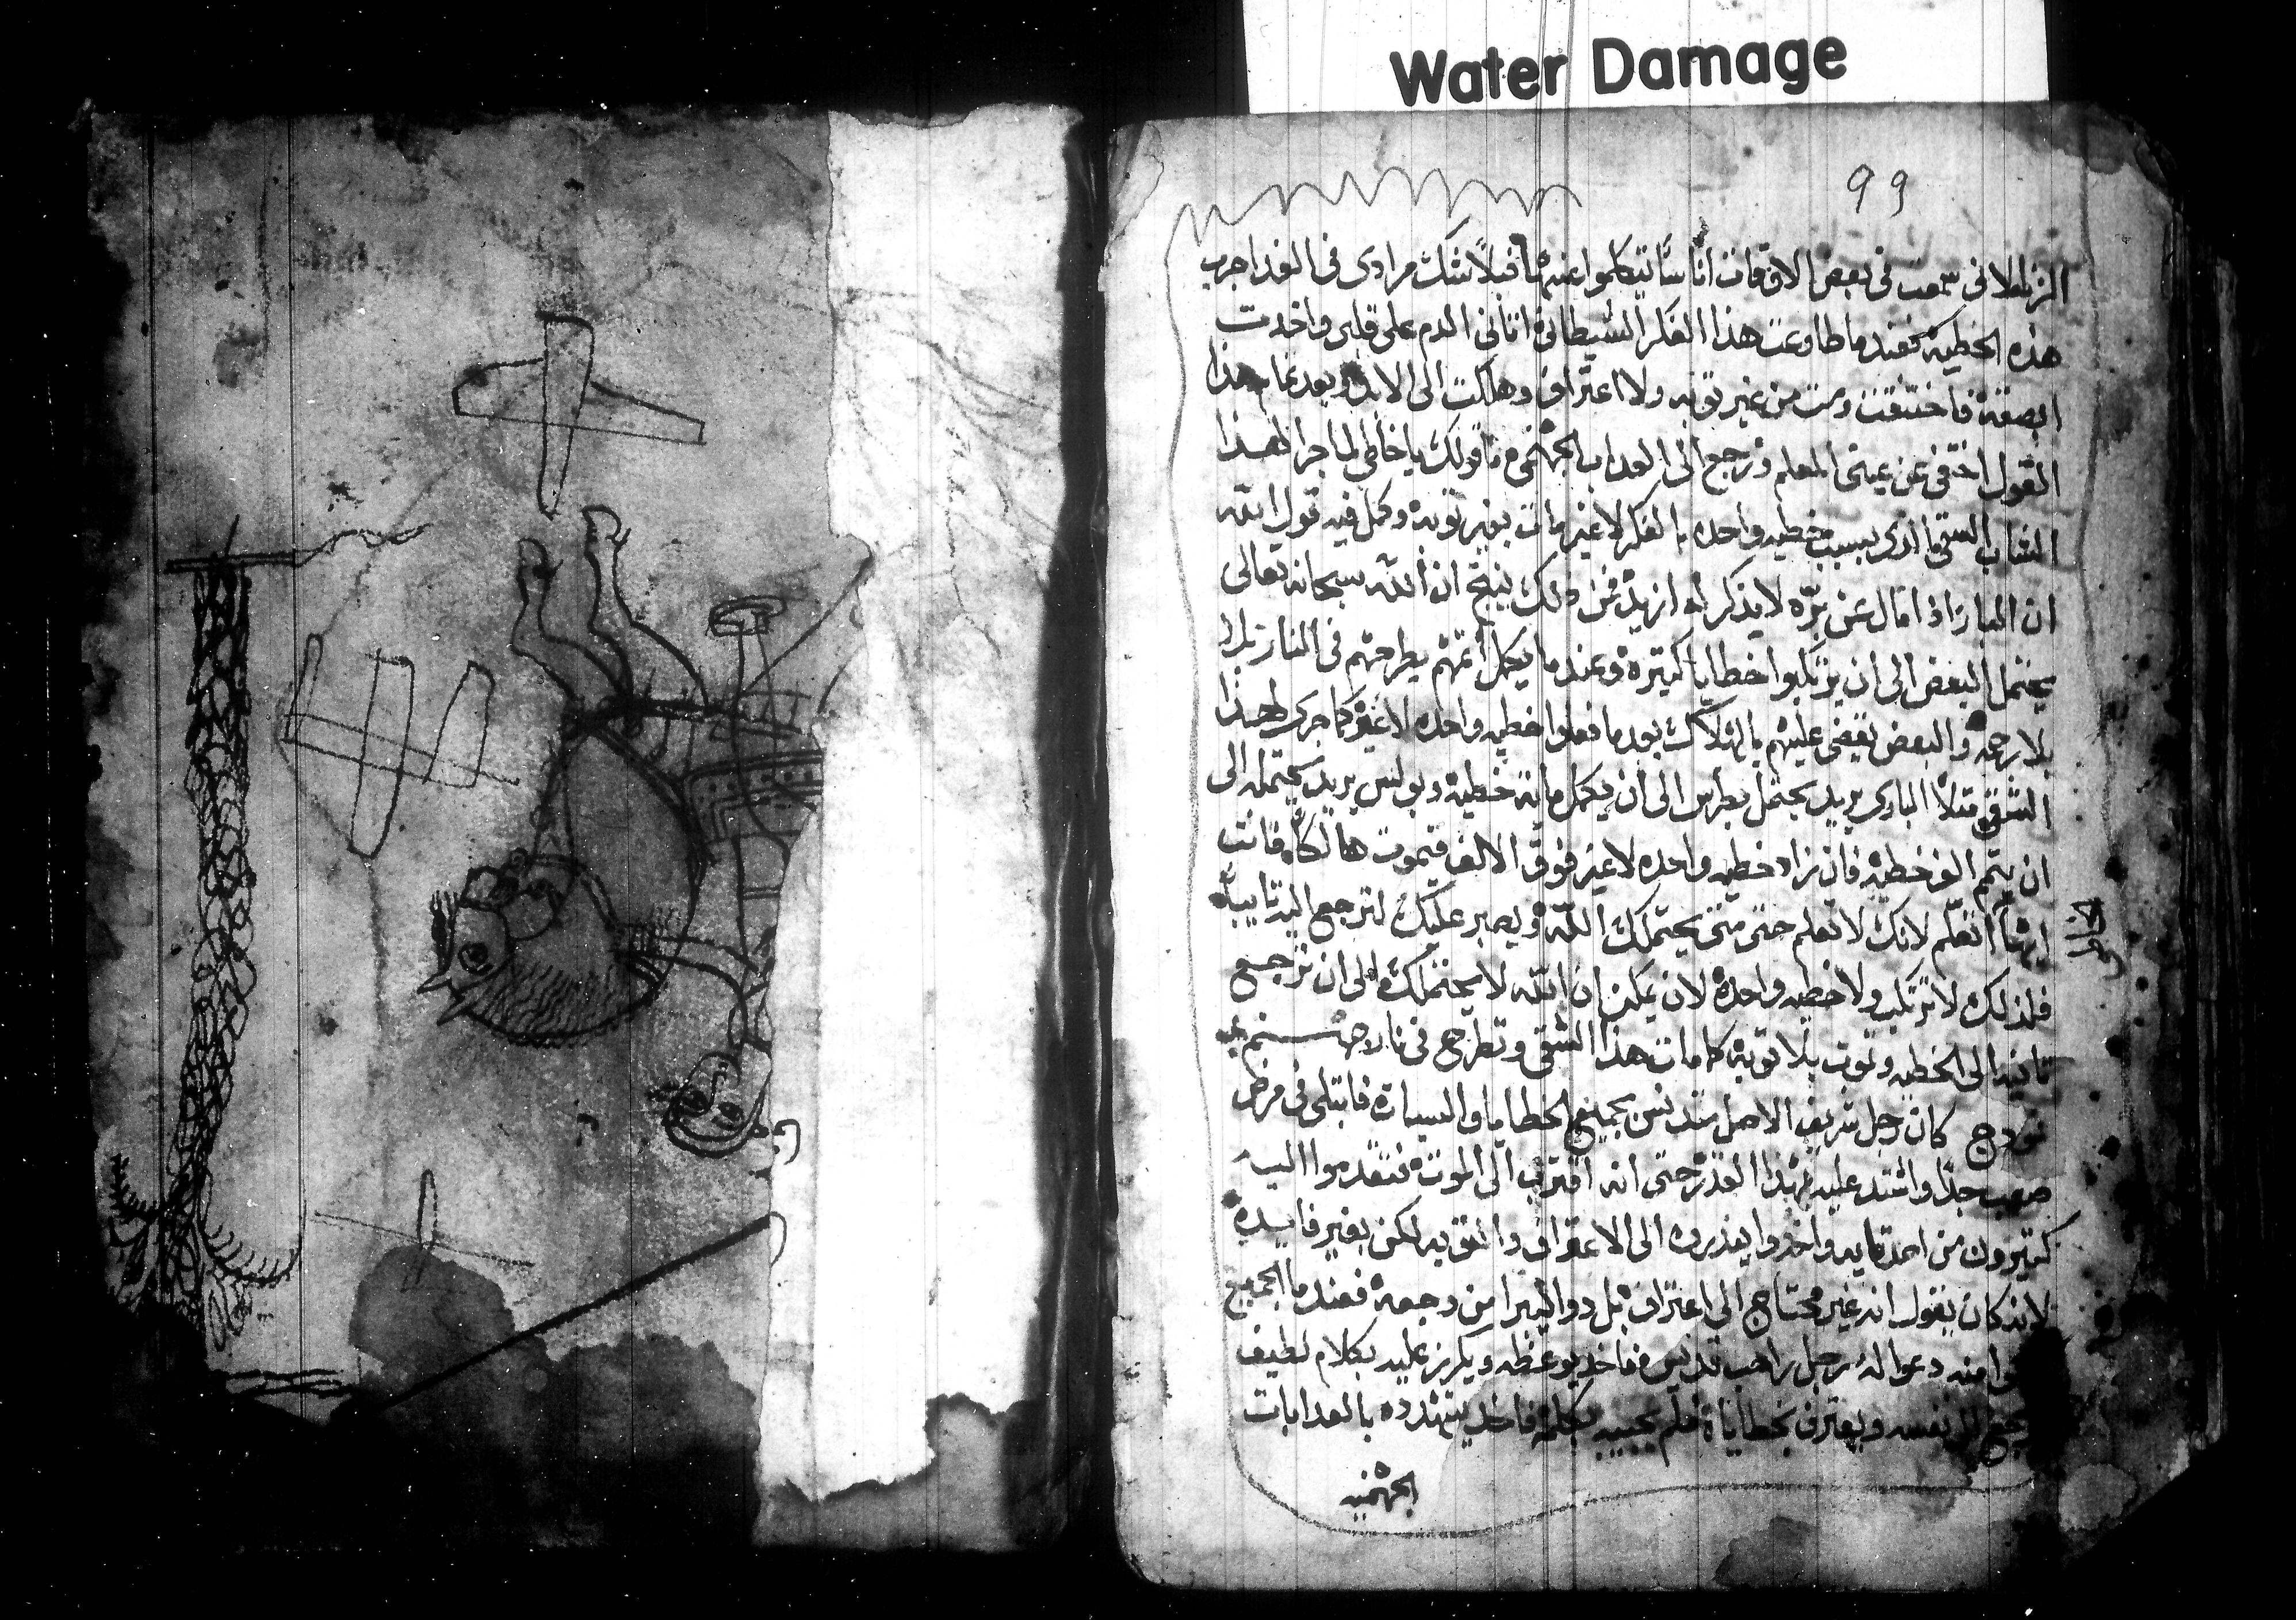 Water Damage
99
الزلط لاني سمعت في بعض الاوقات اناسًا يتكلموا عنها قبلًا شك مرادي في الغد اجرب
هذه الخطيه فعندما طاوعت هذا الفكر الشيطاني اتاني الدم على قلبي واخدت
ابصقه فاختنقت ومت من غير توبه ولا اعتراف وهلكت الى الابد وبعد تمام هذا
القول اختفى عن عيني المعلم ورجع الى العداب الجهنمي ما قولك يا خاطي لما جرا لهذا
الشاب الشقي الذي بسبب خطيه واحده بالفكر لا غير مات بغير توبه وكمل فيه قول الله
ان البار اذا مال عن بره لا يذكر له ازيد من ذلك ينتج ان الله سبحانه تعالى
يحتمل البعض الى ان يرتكبوا خطايا كتيره وعندما يكمل اتمهم يطرحهم في النار
بلا رحمه والبعض يقضي عليهم بالهلاك بعد ما فعلوا خطيه واحده لا غير كما جرى لهذا
الشقي متلًا الباري يريد يحتمل بطرس الى ان يكمل مايه خطيه وبولس يريد يحتمله الى
ان يتمم الف خطيه فان زاد خطيه واحده لا غير فوق الالف فيموت هالكًا فانت
ايضًا اتعلم لانك لا تعلم حتى متى يحتملك الله ويصبر عليك لترجع اليه تايبًا
فلذلك لا ترتكب ولا خطيه واحده لان يمكن ان الله لا يحتملك الى ان ترجع
تانيه الى الخطيه وتموت بلا توبه كما مات هذا الشقي وتطرح في نار جهنم
خبر
نمودج كان رجل شريف الاصل متدنس بجميع الخطايا والسيات فابتلى في مرض
صعب جدًا واشتد عليه بهذا القدر حتى انه اقترب الى الموت فتقدموا اليه
كتيرون من اصدقايه واخدوا ينذروه الى الاعتراف والتوبه لكن بغير فايده
لانه كان يقول انه غير محتاج الى اعتراف بل دوا ليبرا من وجعه فعندما الجميع
منه دعوا له رجل راهب قديس فاخد يوعظه ويكرز عليه بكلام لطيف
نفسه ويعترف بخطاياه فلم يجيبه بكلمه فاخد يتهدده بالعدابات
الجهنميه